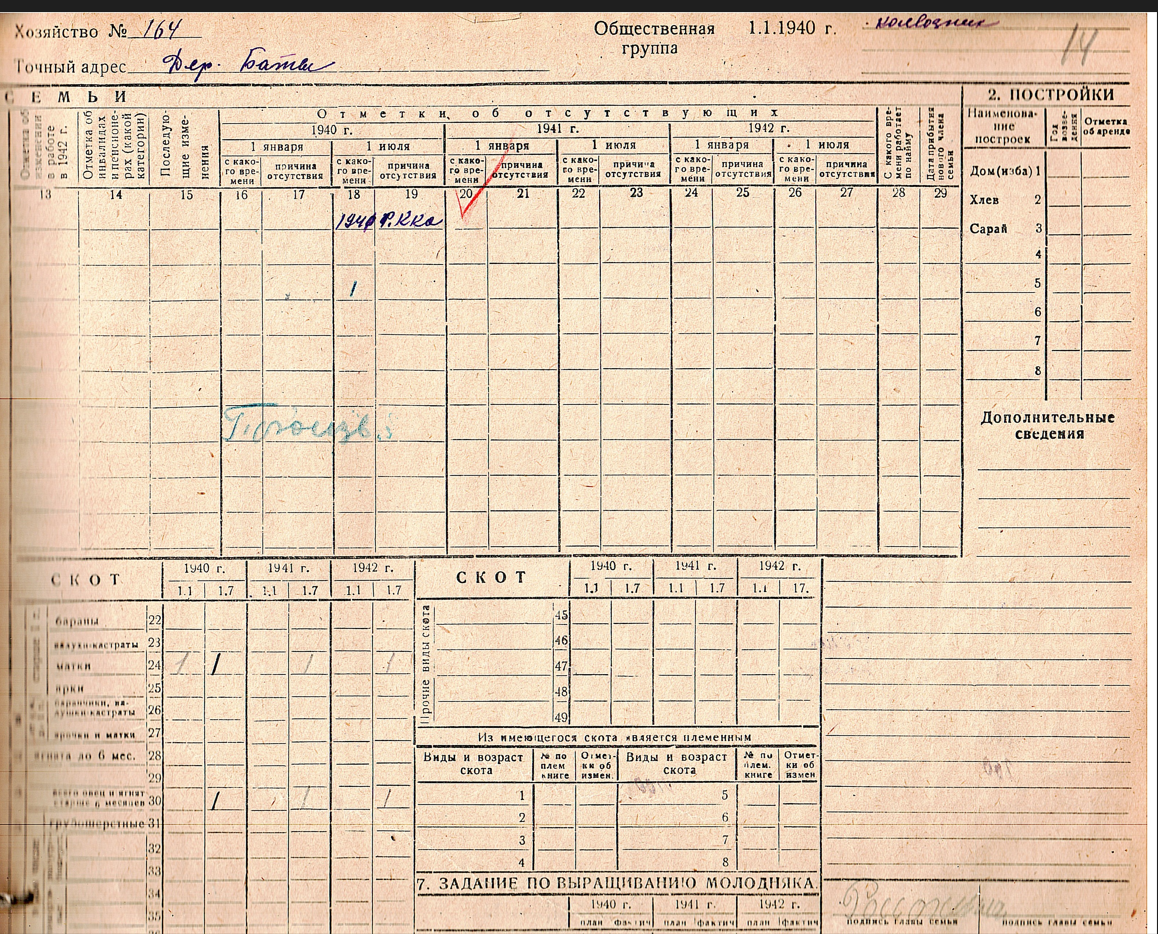 Хозяйство № 164
Общественная группа 1.1.1940 г. колхозник
14
Точный адрес Дер. Баты
СЕМЬИ
2. ПОСТРОЙКИ
Отметки об отсутствующих
1940 г. 1941 г. 1942 г.
1 января 1 июля 1 января 1 июля 1 января 1 июля
в работе в 1942 г.
Отметка об инвалидах и пенсионерах (какой категории)
Последующие изменения
с какого времени причина отсутствия с какого времени причина отсутствия с какого времени причина отсутствия с какого времени причина отсутствия с какого времени причина отсутствия с какого времени причина отсутствия
С какого времени работает по найму
Дата прибытия нового члена семьи
Наименование построек
Год возведения
Отметка об аренде
13 14 15 16 17 18 19 20 21 22 23 24 25 26 27 28 29
1940 РККА
1
Дом (изба) 1
Хлев 2
Сарай 3
4
5
6
7
8
Дополнительные сведения
СКОТ
1940 г. 1941 г. 1942 г.
1.1 1.7 1.1 1.7 1.1 1.7
бараны 22
валухи-кастраты 23
матки 24 1 1 1 1
ярки 25
баранчики, валушки-кастраты 26
ярочки и матки 27
ягнята до 6 мес. 28
29
всего овец и ягнят старше 6 месяцев 30 1 1 1
грубошерстные 31
32
33
34
35
СКОТ
1940 г. 1941 г. 1942 г.
1.1 1.7 1.1 1.7 1.1 17.
Прочие виды скота
45
46
47
48
49
Из имеющегося скота является племенным
Виды и возраст скота № по плем книге Отметки об измен. Виды и возраст скота № по плем. книге Отметки об измен
1 5
2 6
3 7
4 8
7. ЗАДАНИЕ ПО ВЫРАЩИВАНИЮ МОЛОДНЯКА.
1940 г. 1941 г. 1942 г.
план фактич план фактич план фактич
подпись главы семьи подпись главы семьи